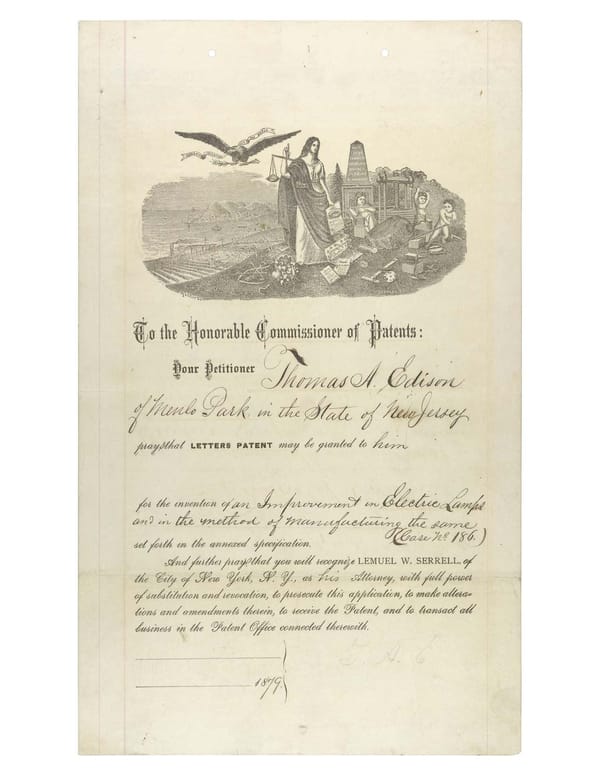 To the Honorable Commissioner of Patents:
Your Petitioner Thomas A. Edison
of Menlo Park in the State of New Jersey
prays that LETTERS PATENT may be granted to him
for the invention of an Improvement in Electric Lamps
and in the method of manufacturing the same
set forth in the annexed specification. (Case No 186.)
And further prays that you will recognize LEMUEL W. SERRELL, of
the City of New York, N. Y., as his Attorney, with full power
of substitution and revocation, to prosecute this application, to make altera-
tions and amendments therein, to receive the Patent, and to transact all
business in the Patent Office connected therewith.
1879.